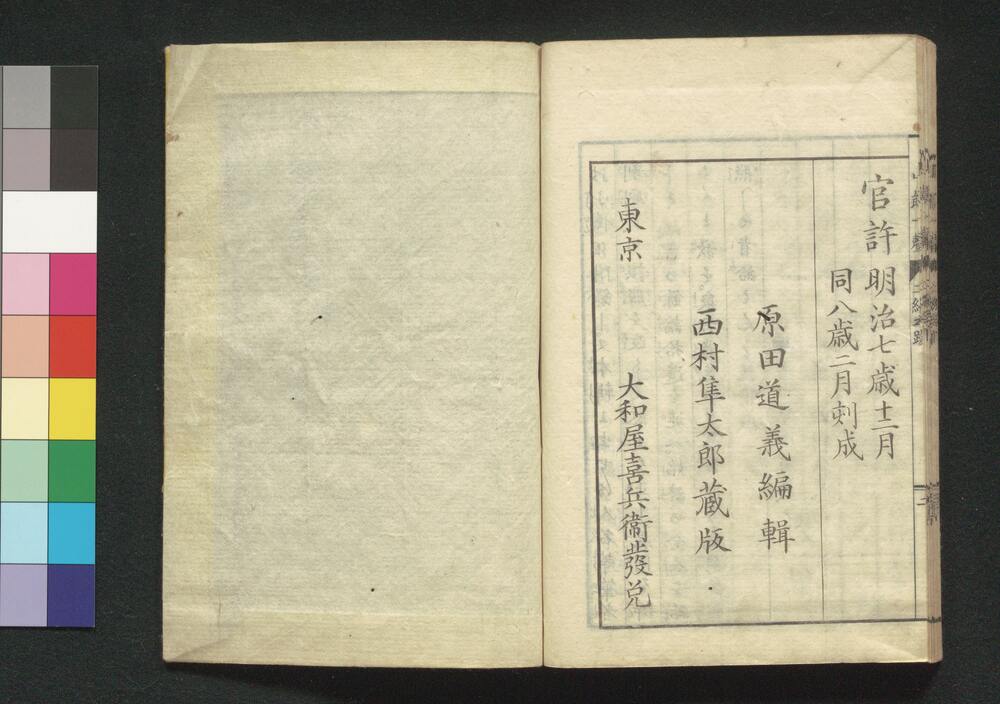 官許明治七歳十二月
同八歳二月刻成
原田道義編輯
西村隼太郎蔵版
東京　大和屋喜兵衞發兌